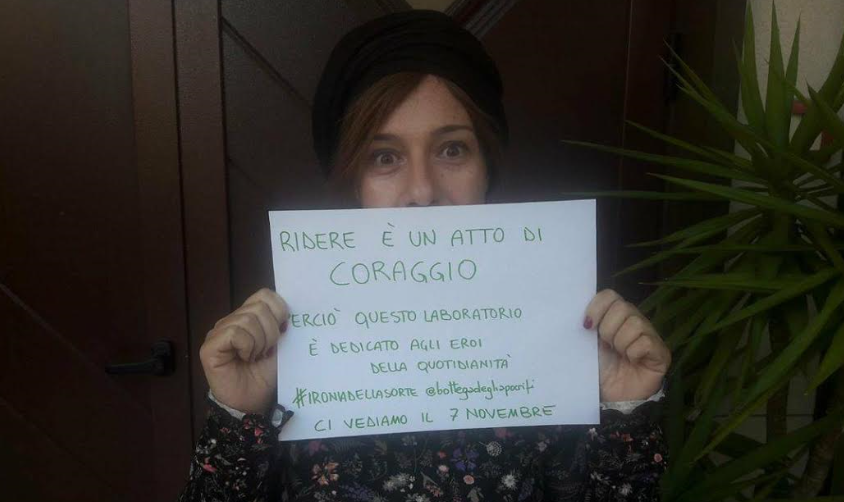 RIDERE È UN ATTO DI
CORAGGIO
PERCIÒ QUESTO LABORATORIO
È DEDICATO AGLI EROI
DELLA QUOTIDIANITÀ
#IRONIADELLASORTE @bottegadegliapocrifi
CI VEDIAMO IL 7 NOVEMBRE